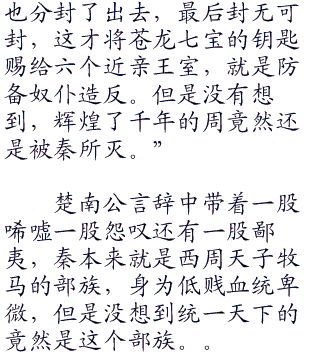 也分封了出去，最后封无可
封，这才将苍龙七宝的钥匙
赐给六个近亲王室，就是防
备奴仆造反。但是没有想
到，辉煌了千年的周竟然还
是被秦所灭。”
楚南公言辞中带着一股
唏嘘一股怨叹还有一股鄙
夷，秦本来就是西周天子牧
马的部族，身为低贱血统卑
微，但是没想到统一天下的
竟然是这个部族。。